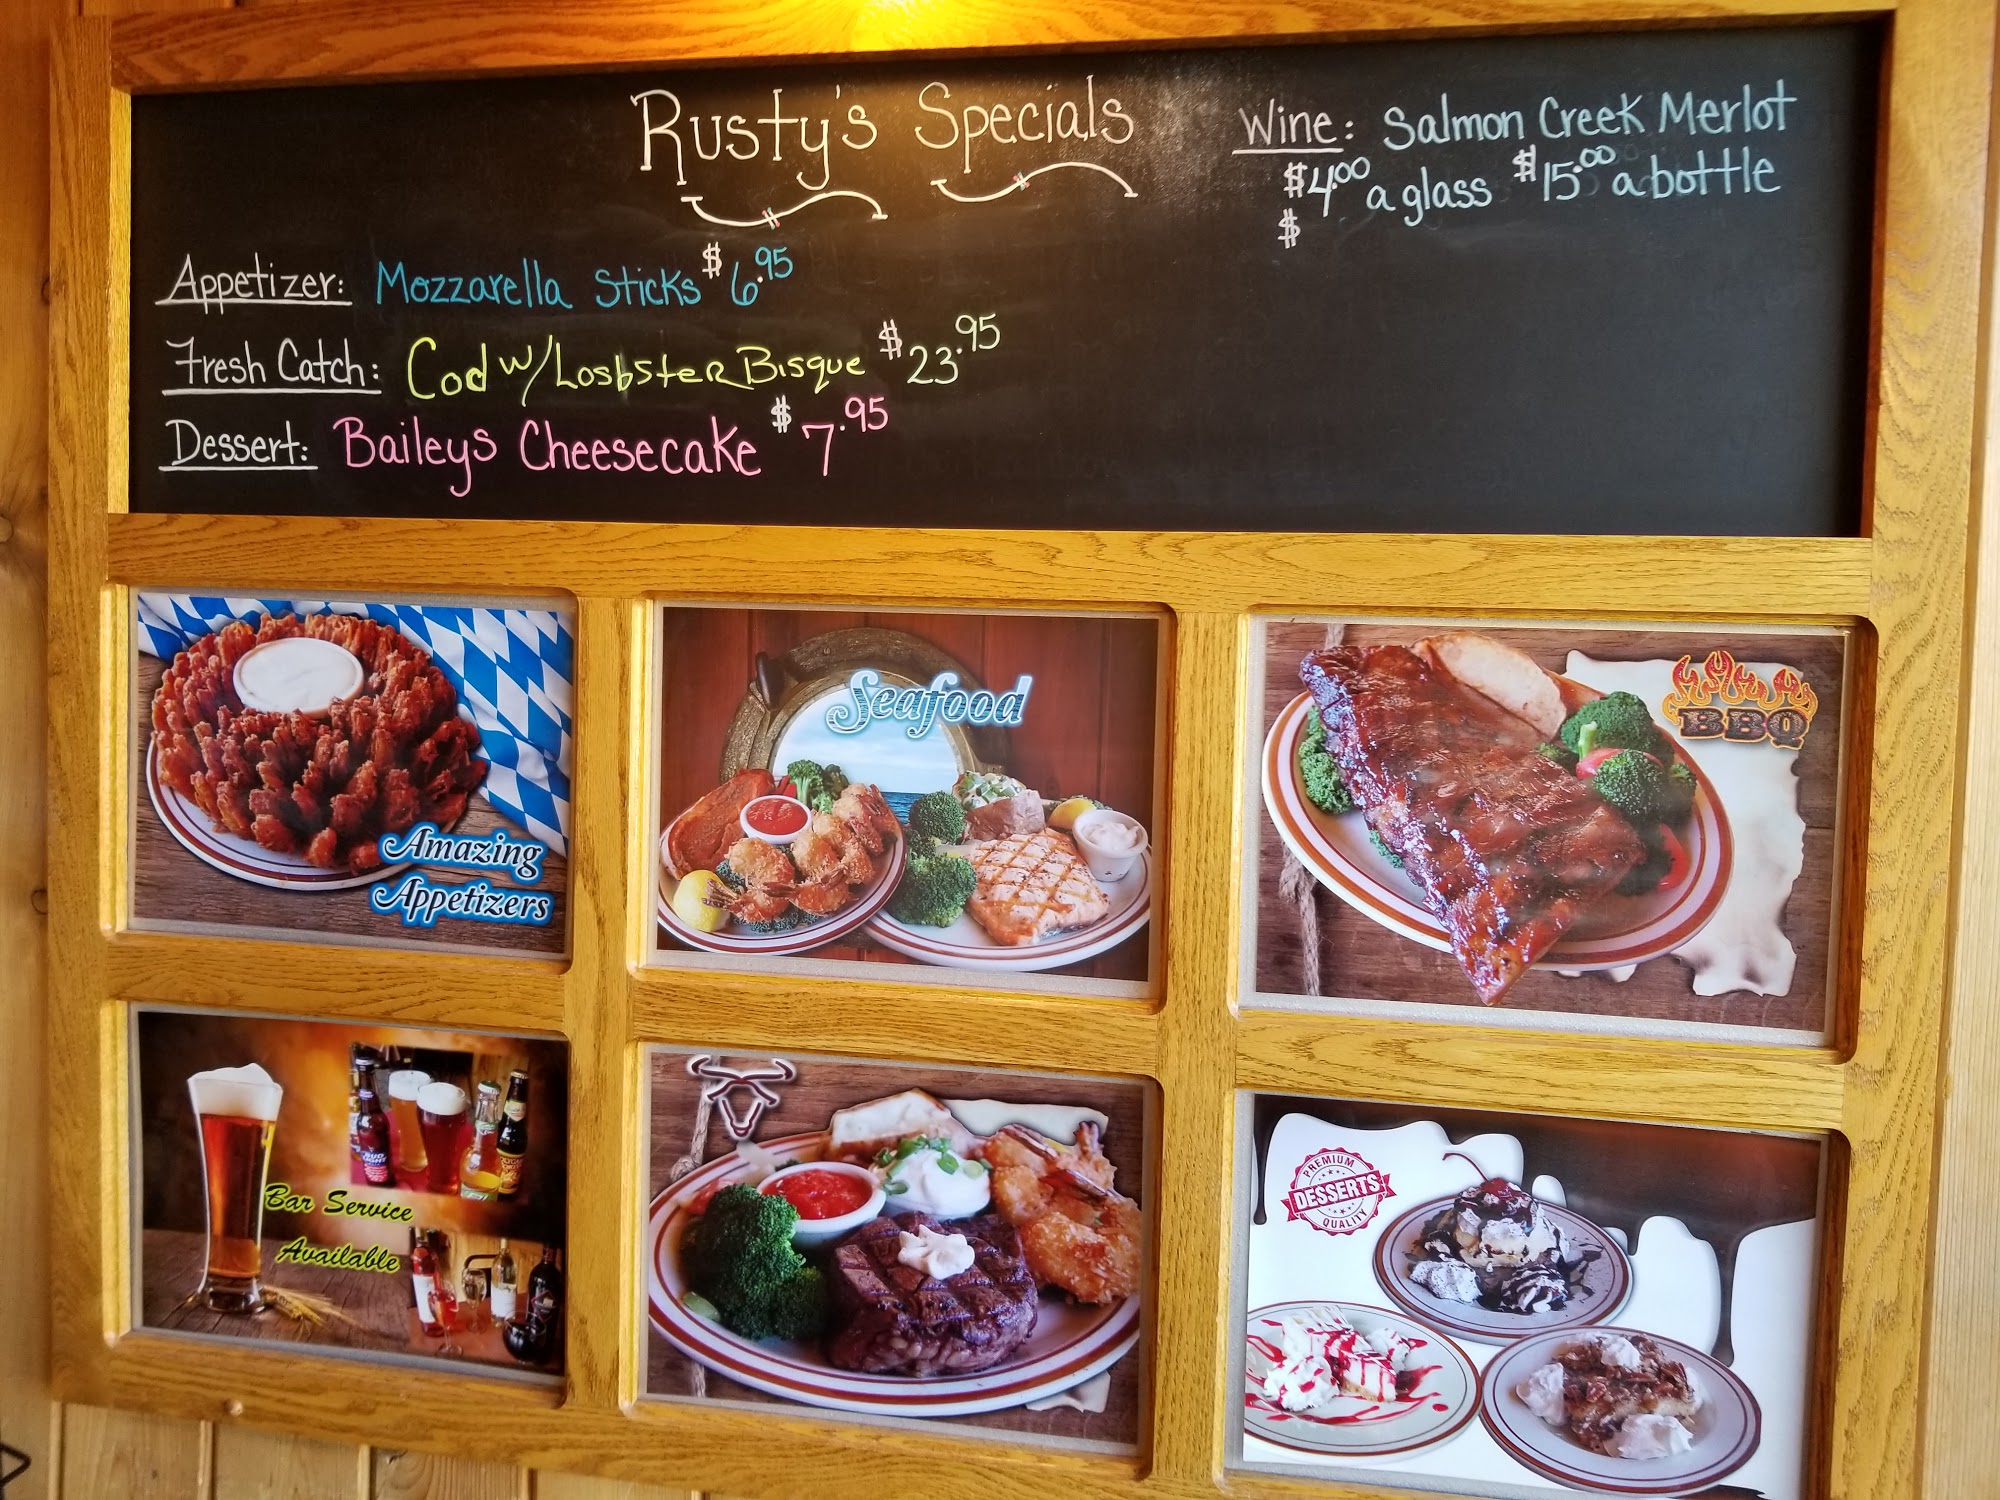 Rusty's Specials
Wine: Salmon Creek Merlot
$4.00 a glass $15.00 a bottle
$
Appetizer: Mozzarella Sticks $6.95
Fresh Catch: Cod w/Losbster Bisque $23.95
Dessert: Baileys Cheesecake $7.95
Amazing
Appetizers
Seafood
BBQ
Bar Service
Available
BUD
LIGHT
PREMIUM
DESSERTS
QUALITY